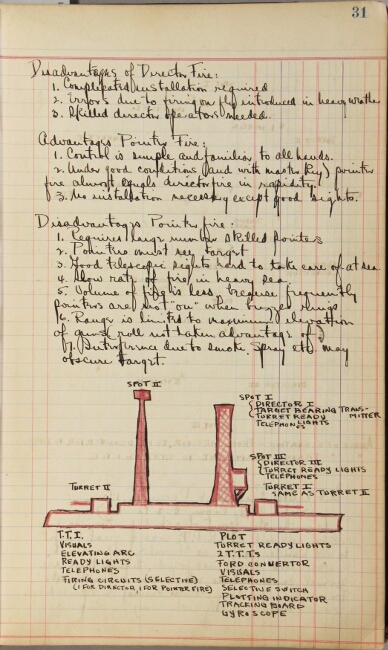 31
Disadvantages of Director Fire:
1. Complicated installation required
2. Errors due to firing on fly introduced in heavy weather
3. Skilled director operators needed.
Advantages Pointer Fire:
1. Control is simple and familiar to all hands.
2. Under good conditions (and with master key) pointer
fire almost equals director fire in rapidity.
3. No installation necessary except good sights.
Disadvantages Pointer fire:
1. Requires large number skilled pointers
2. Pointers must see target
3. Good telescopic sights hard to take care of at sea
4. Slow rate of fire in heavy sea
5. Volume of fire is less because frequently
pointers are not "on" when buzzer rings
6. Range is limited to maximum elevation
of guns (roll not taken advantage of)
7. Interference due to smoke, spray etc. may
obscure target.
SPOT II
SPOT I
DIRECTOR I
TARGET BEARING TRANSMITTER
TURRET READY LIGHTS
TELEPHONES
SPOT III
DIRECTOR III
TURRET READY LIGHTS
TELEPHONES
TURRET II
TURRET I
SAME AS TURRET II
T.T.I.
VISUALS
ELEVATING ARC
READY LIGHTS
TELEPHONES
FIRING CIRCUITS (SELECTIVE)
(1 FOR DIRECTOR, 1 FOR POINTER FIRE)
PLOT
TURRET READY LIGHTS
2 T.T.T.S
FORD CONVERTOR
VISUALS
TELEPHONES
SELECTIVE SWITCH
PLOTTING INDICATOR
TRACKING BOARD
GYROSCOPE